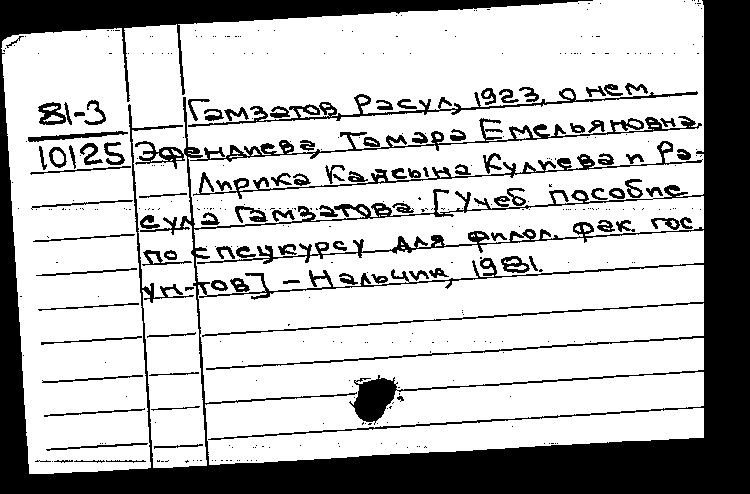 81-3
10125
Гамзатов, Расул, 1923, о нем.
Эфендиева, Тамара Емельяновна.
Лирика Кайсына Кулиева и Ра-
сула Гамзатова: [Учеб. пособие
по спецкурсу для филол. фак. гос.
ун-тов] - Нальчик, 1981.